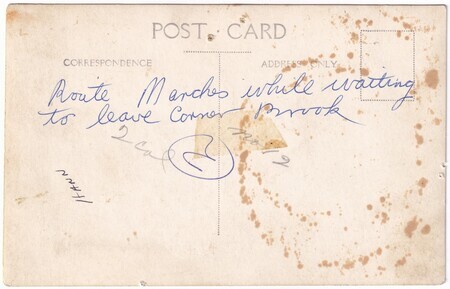 POST CARD
CORRESPONDENCE
ADDRESS ONLY
Route Marches while waiting
to leave Corner Brook
2 Col
No 12
2
HANN